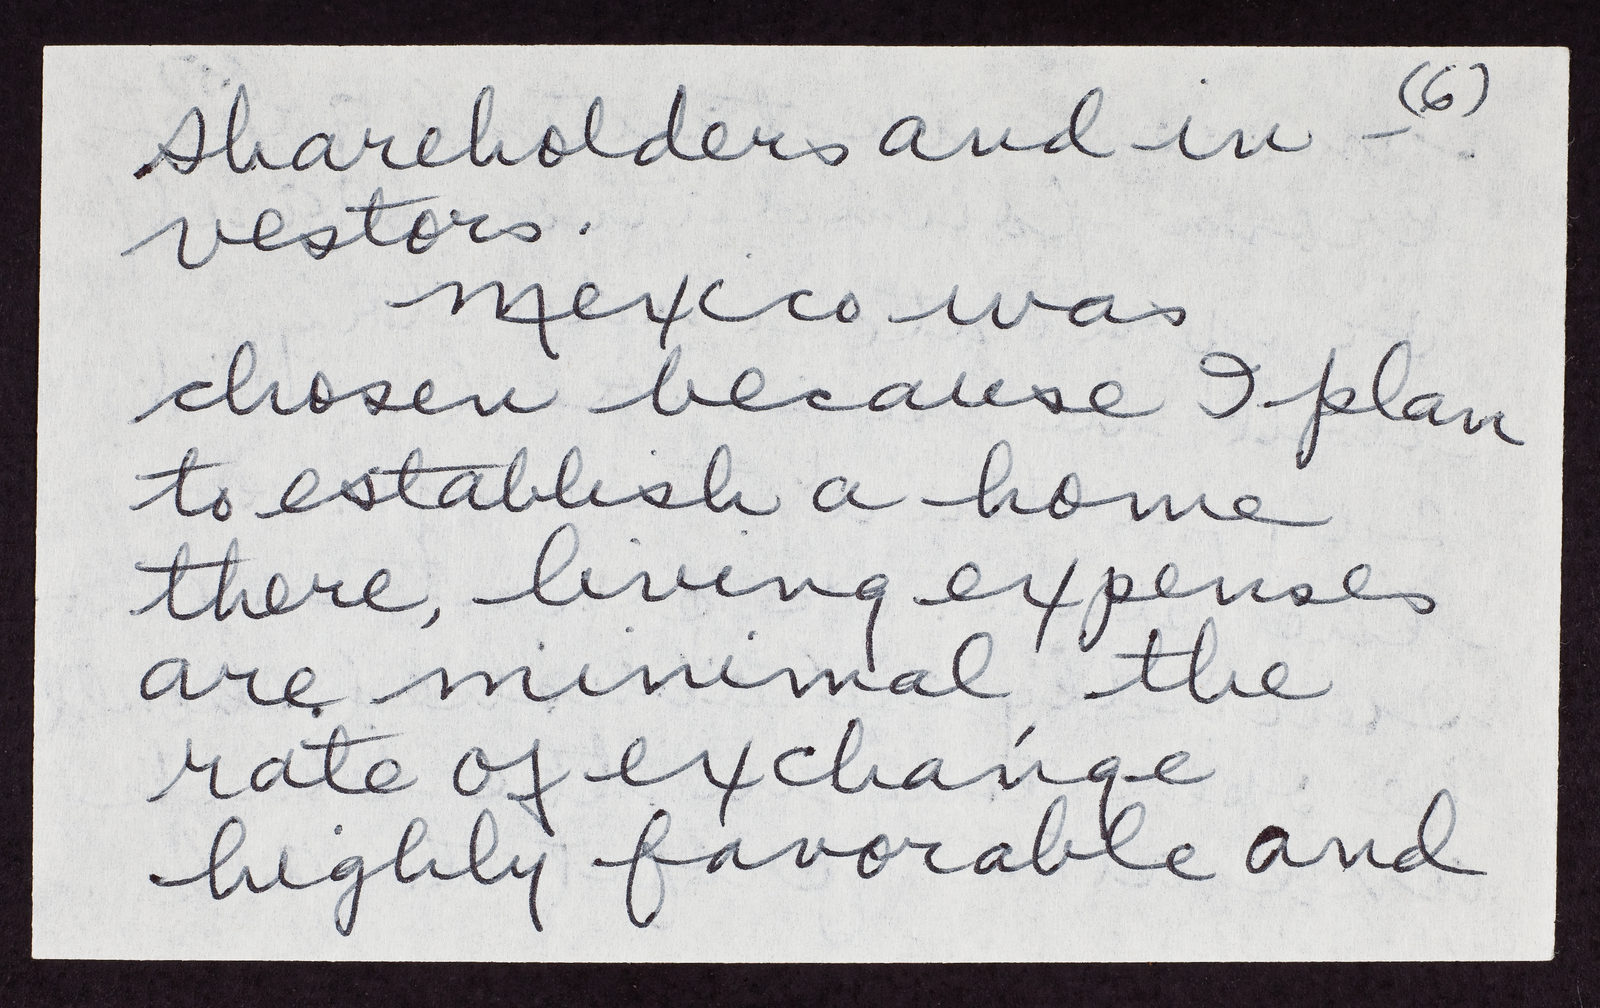 (6)
shareholders and in-
vestors.
Mexico was
chosen because I plan
to establish a home
there, living expenses
are minimal the
rate of exchange
highly favorable and